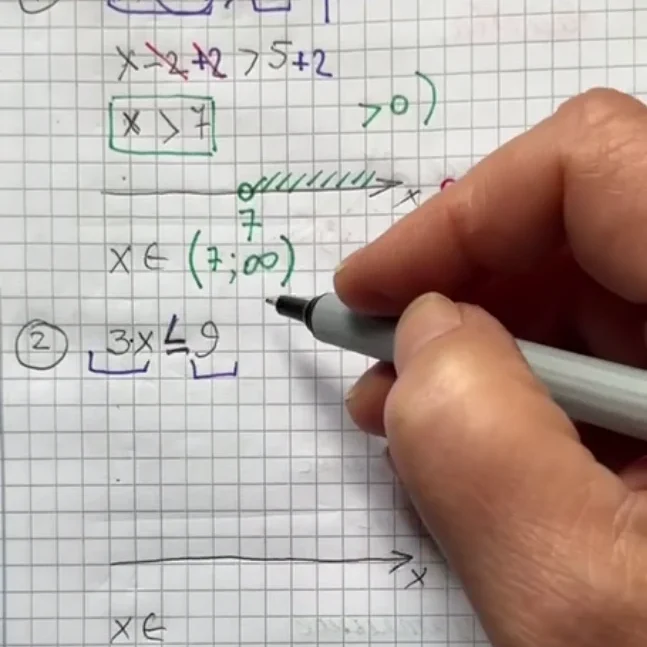 x-2+2 > 5+2
x > 7
> o )
x
7
x ∈ (7; ∞)
2 3·x ≤ 9
x
x ∈